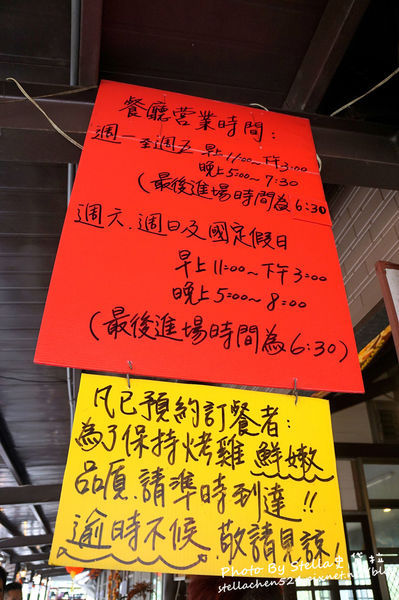 餐廳營業時間:
週一至週五 早上11:00~下午3:00
晚上5:00~7:30
(最後進場時間為6:30
週六.週日及國定假日
早上11:00~下午3:00
晚上5:00~8:00
(最後進場時間為6:30)
凡已預約訂餐者:
為了保持烤雞鮮嫩
品質.請準時到達!!
逾時不候.敬請見諒!
Photo By Stella史